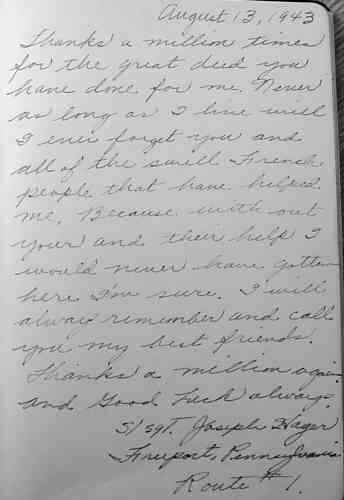 August 13, 1943
Thanks a million times
for the great deed you
have done for me. Never
as long as I live will
I ever forget you and
all of the swell French
people that have helped
me. Because with out
your and their help I
would never have gotten
here I'm sure. I will
always remember and call
you my best friends.
Thanks a million again
and Good Luck always.
S/sgt. Joseph Hager
Freeport, Pennsylvania
Route #1.